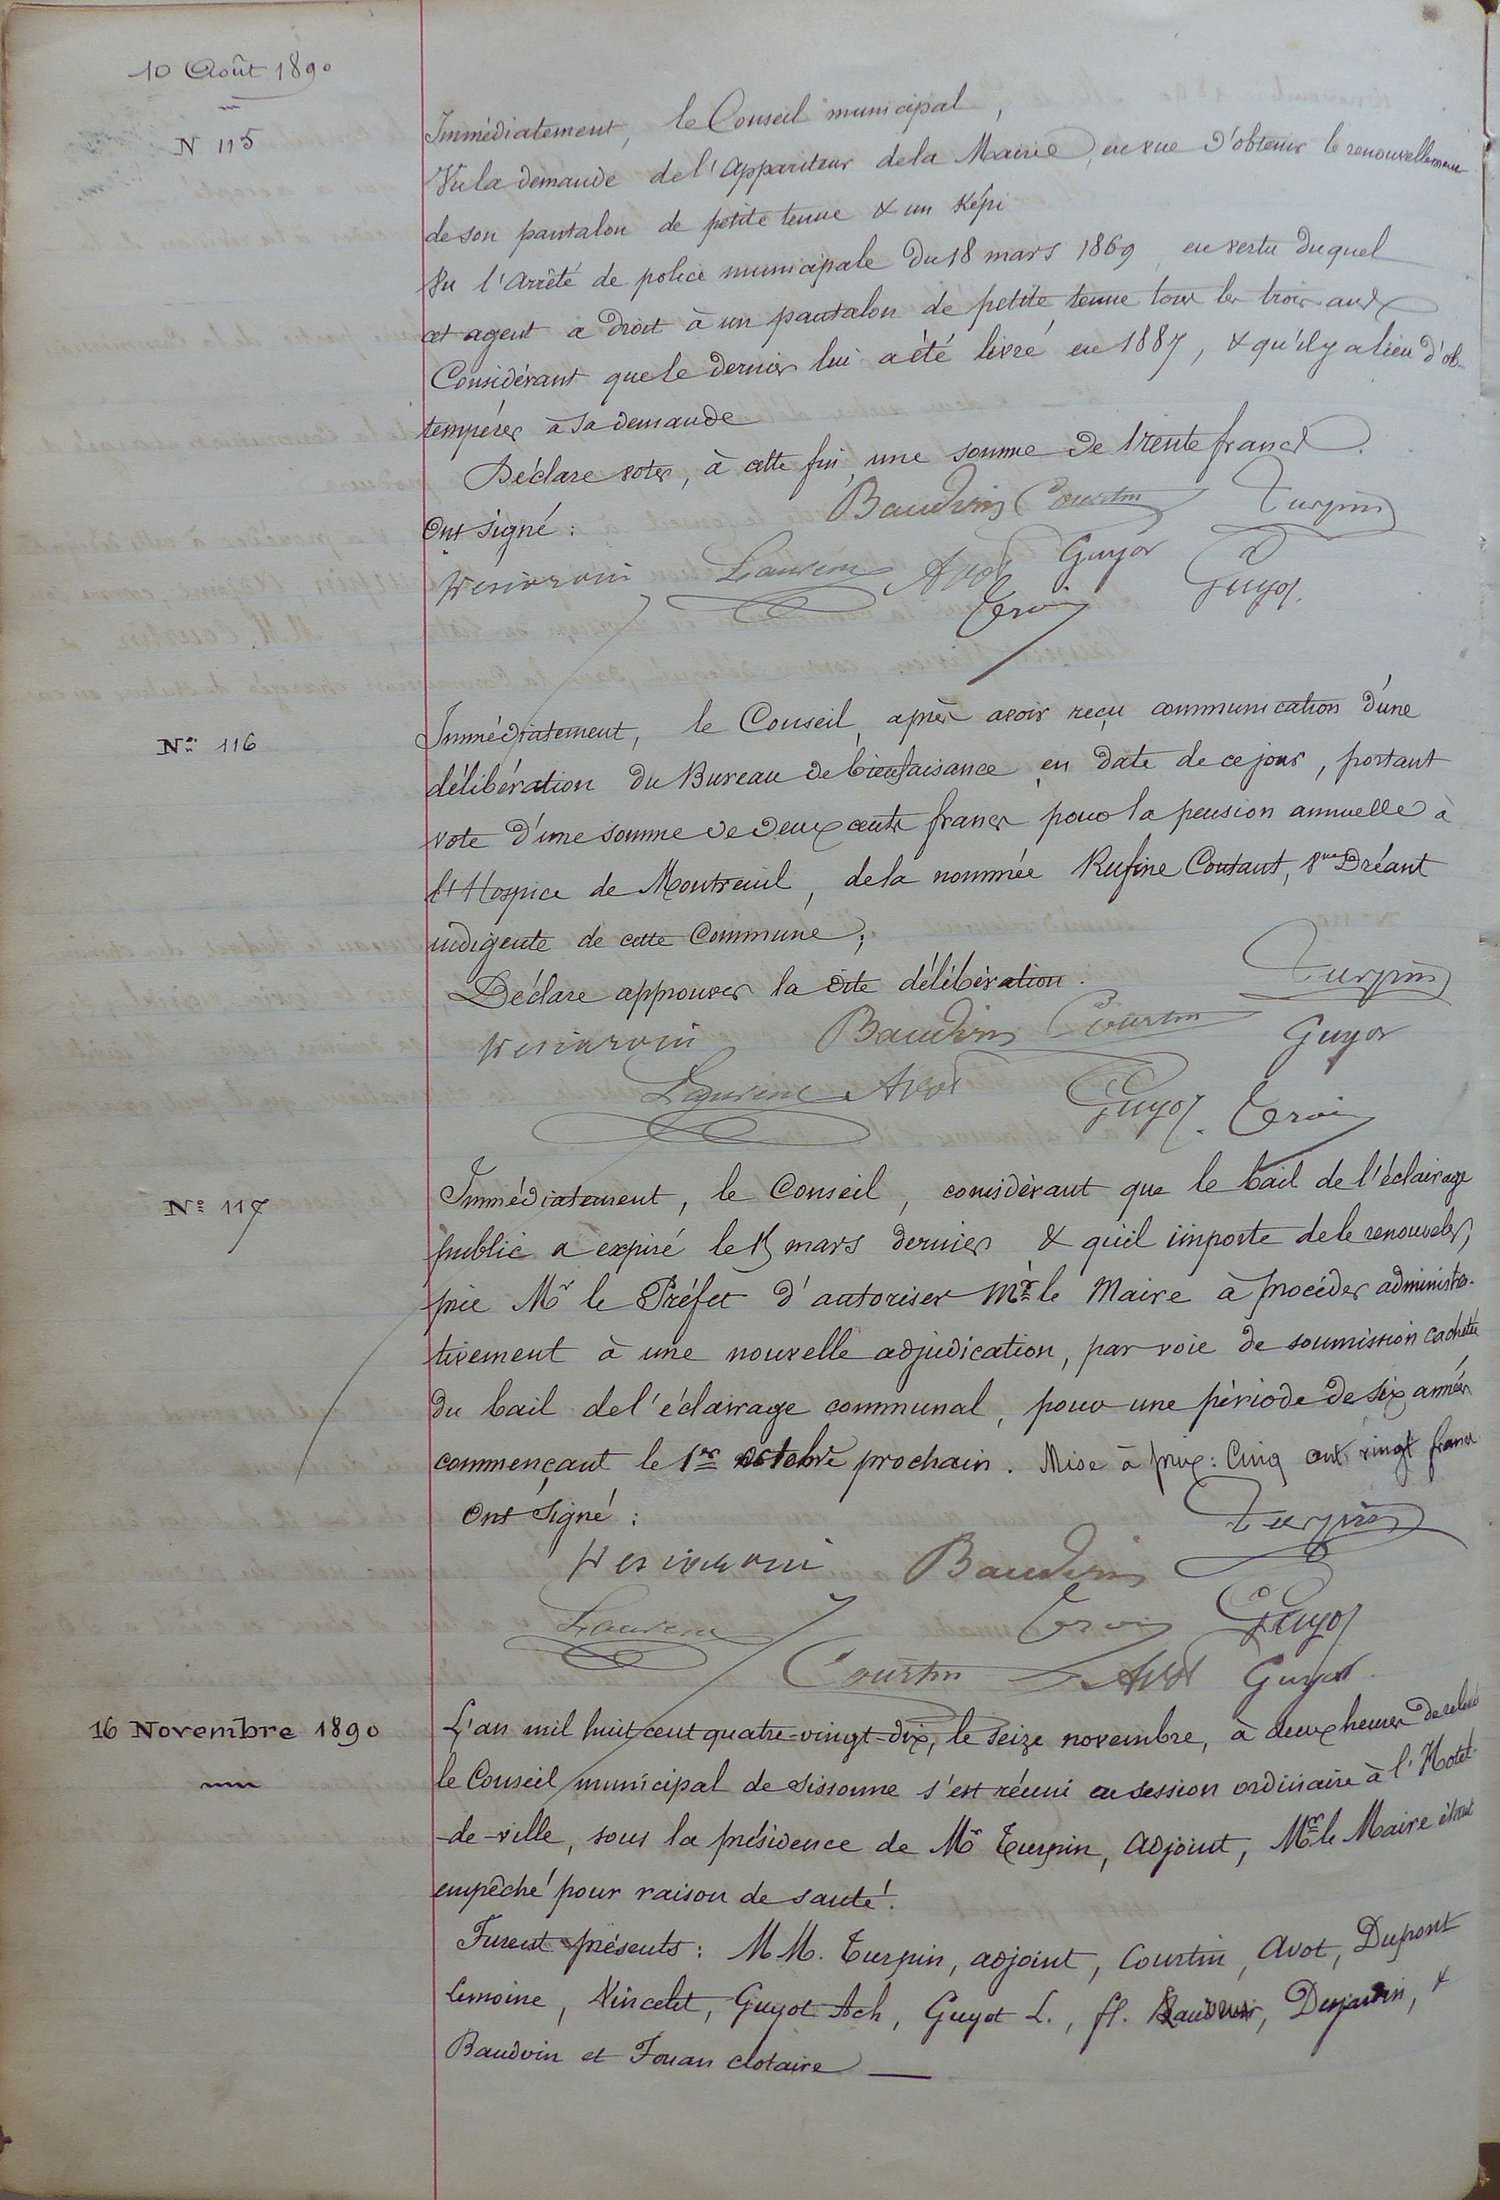 10 Août 1890
N 115
Immédiatement, le Conseil municipal,
Vu la demande de l'appariteur de la Mairie, en vue d'obtenir le renouvellement
de son pantalon de petite tenue & un képi
Vu l'arrêté de police municipale du 18 mars 1869, en vertu duquel
cet agent a droit à un pantalon de petite tenue tous les trois ans
Considérant que le dernier lui a été livré en 1887, & qu'il y a lieu d'ob-
tempérer à sa demande
Déclare voter, à cette fin, une somme de trente francs.
Ont signé :
Baudvin Courtin Turpin
Laurent Avot Guyot Guyot
N° 116
Immédiatement, le Conseil, après avoir reçu communication d'une
délibération du Bureau de bienfaisance en date de ce jour, portant
vote d'une somme de deux cents francs pour la pension annuelle à
l'Hospice de Montreuil, de la nommée Rufine Coutant, Vve Dréant
indigente de cette Commune;
Déclare approuver la dite délibération.
Turpin
Baudvin Courtin Guyot
Avot Guyot
N° 117
Immédiatement, le Conseil, considérant que le bail de l'éclairage
public a expiré le 15 mars dernier & qu'il importe de le renouveler,
prie Mr le Préfet d'autoriser Mr le Maire à procéder administra-
tivement à une nouvelle adjudication, par voie de soumission cachetée
du bail de l'éclairage communal, pour une période de six années
commençant le 1er octobre prochain. Mise à prix : Cinq cent vingt francs
Ont signé :
Turpin
Baudvin
Guyot
Courtin Avot Guyot
16 Novembre 1890
L'an mil huit cent quatre-vingt-dix, le seize novembre, à deux heures de relevée
le Conseil municipal de Sissonne s'est réuni en session ordinaire à l'Hotel-
-de-ville, sous la présidence de Mr Turpin, adjoint, Mr le Maire étant
empêché pour raison de santé.
Furent présents : MM. Turpin, adjoint, Courtin, Avot, Dupont
Lemoine, Vincelet, Guyot Ach, Guyot L., fl. Desjardin, &
Baudvin et Fouan Clotaire